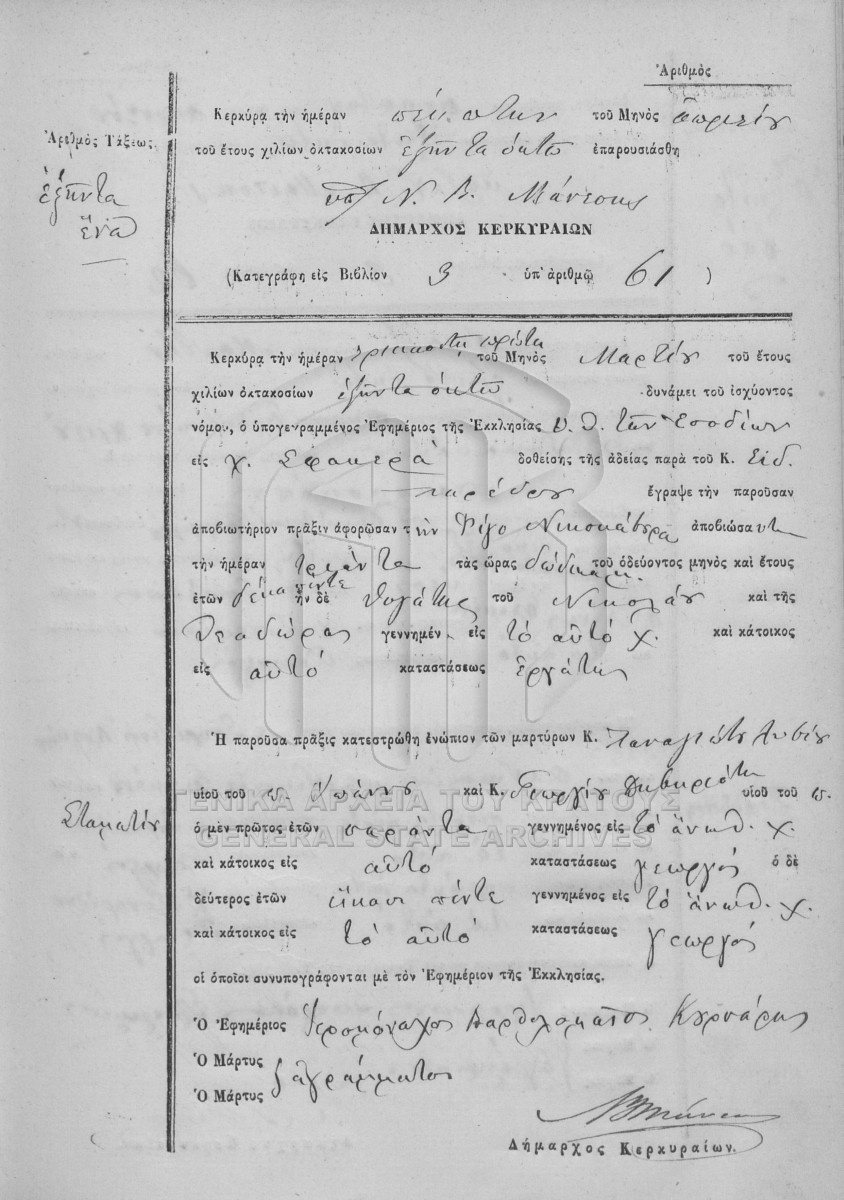 Ἀριθμὸς
Κερκύρα τὴν ἡμέραν πέμπτην τοῦ Μηνὸς Ἀπριλίου
Ἀριθμὸς Τάξεως
τοῦ ἔτους χιλίων ὀκτακοσίων ἑξῆντα ὀκτὼ ἐπαρουσιάσθη
ἑξῆντα
ἕνα
Ν. Β. Μάνεσης
ΔΗΜΑΡΧΟΣ ΚΕΡΚΥΡΑΙΩΝ
(Κατεγράφη εἰς Βιβλίον 3 ὑπ' ἀριθμῷ 61 )
Κερκύρα τὴν ἡμέραν τριακοστὴ πρώτη τοῦ Μηνὸς Μαρτίου τοῦ ἔτους
χιλίων ὀκτακοσίων ἑξῆντα ὀκτὼ δυνάμει τοῦ ἰσχύοντος
νόμου, ὁ ὑπογεγραμμένος Ἐφημέριος τῆς Ἐκκλησίας Υ. Θ. τῶν Ἐσοδίων
εἰς χ. Σφακερὰ δοθείσης τῆς ἀδείας παρὰ τοῦ Κ. Εἰδ.
Παρέδρου ἔγραψε τὴν παροῦσαν
ἀποβιωτήριον πρᾶξιν ἀφορῶσαν τὴν Νικοκάβουρα ἀποβιώσα
τὴν ἡμέραν τριάντα τὰς ὥρας δώδεκα τοῦ ὁδεύοντος μηνὸς καὶ ἔτους
ἐτῶν δέκα πέντε ἦν δὲ θυγάτης τοῦ Νικολάου καὶ τῆς
Θεοδώρας γεννημέν εἰς τὸ αὐτὸ χ. καὶ κάτοικος
εἰς αὐτὸ καταστάσεως ἐργάτης
Ἡ παροῦσα πρᾶξις κατεστρώθη ἐνώπιον τῶν μαρτύρων Κ. Παναγιώτου
υἱοῦ τοῦ π. Ἰωάννου καὶ Κ. Γεωργίου υἱοῦ τοῦ π.
Σταματίου
ὁ μὲν πρῶτος ἐτῶν σαράντα γεννημένος εἰς τὸ ἄνωθ. χ.
καὶ κάτοικος εἰς αὐτὸ καταστάσεως γεωργός ὁ δὲ
δεύτερος ἐτῶν εἴκοσι πέντε γεννημένος εἰς τὸ ἄνωθ. χ.
καὶ κάτοικος εἰς τὸ αὐτὸ καταστάσεως γεωργός
οἱ ὁποῖοι συνυπογράφονται μὲ τὸν Ἐφημέριον τῆς Ἐκκλησίας.
Ὁ Ἐφημέριος Ἱερομόναχος Βαρθολομαῖος Κυρνάρης
Ὁ Μάρτυς ἀγράμματος
Ὁ Μάρτυς
Δήμαρχος Κερκυραίων.
ΓΕΝΙΚΑ ΑΡΧΕΙΑ ΤΟΥ ΚΡΑΤΟΥΣ
GENERAL STATE ARCHIVES